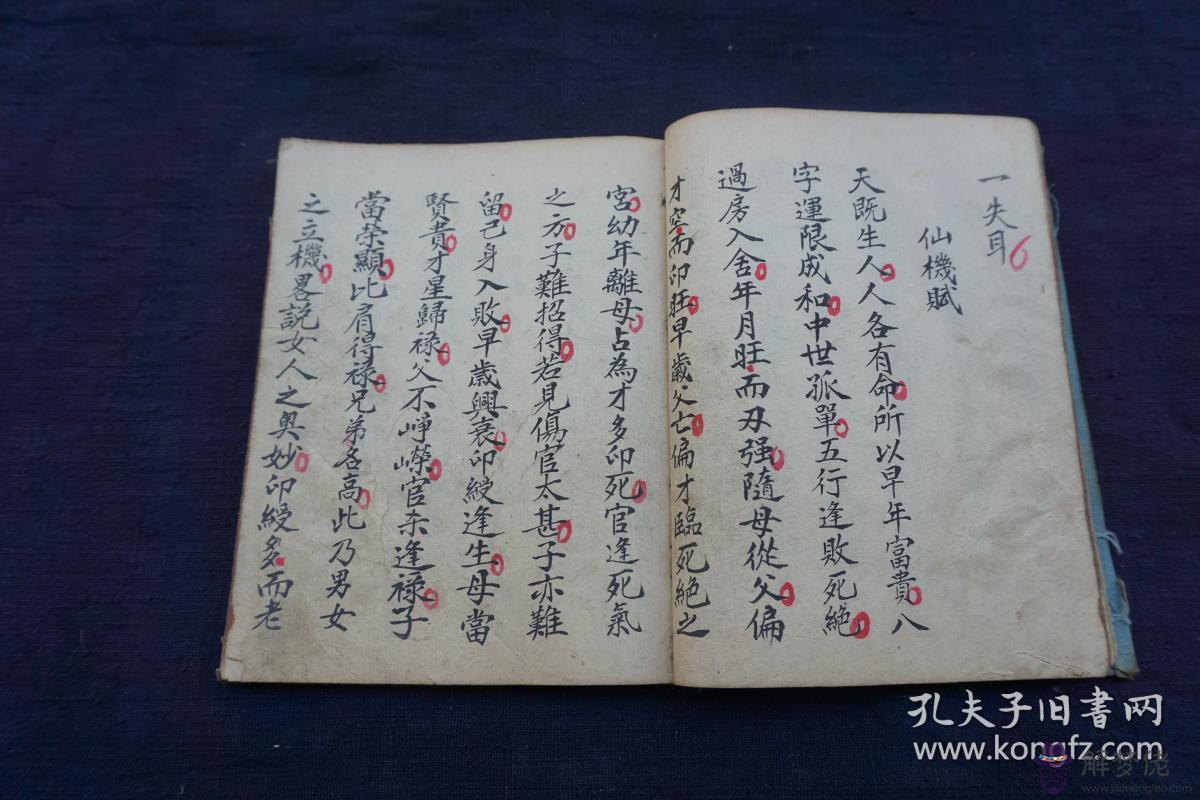 一失耳
仙機賦
天既生人人各有命所以早年富貴八
字運限成和中世孤單五行逢敗死絕
過房入舍年月旺而刃强隨母從父偏
才空而印旺早歲父亡偏才臨死絕之
宮幼年離母占為才多印死官逢死氣
之方子難招得若見傷官太甚子亦難
留己身入敗早歲興衰印綬逢生母當
賢貴才星歸祿父不崢嶸官杀逢祿子
當荣顯比肩得祿兄弟各高此乃男女
之立機畧説女人之奥妙印綬多而老
孔夫子旧書网
www.kongfz.com
解梦佬
www.jiemenglao.com